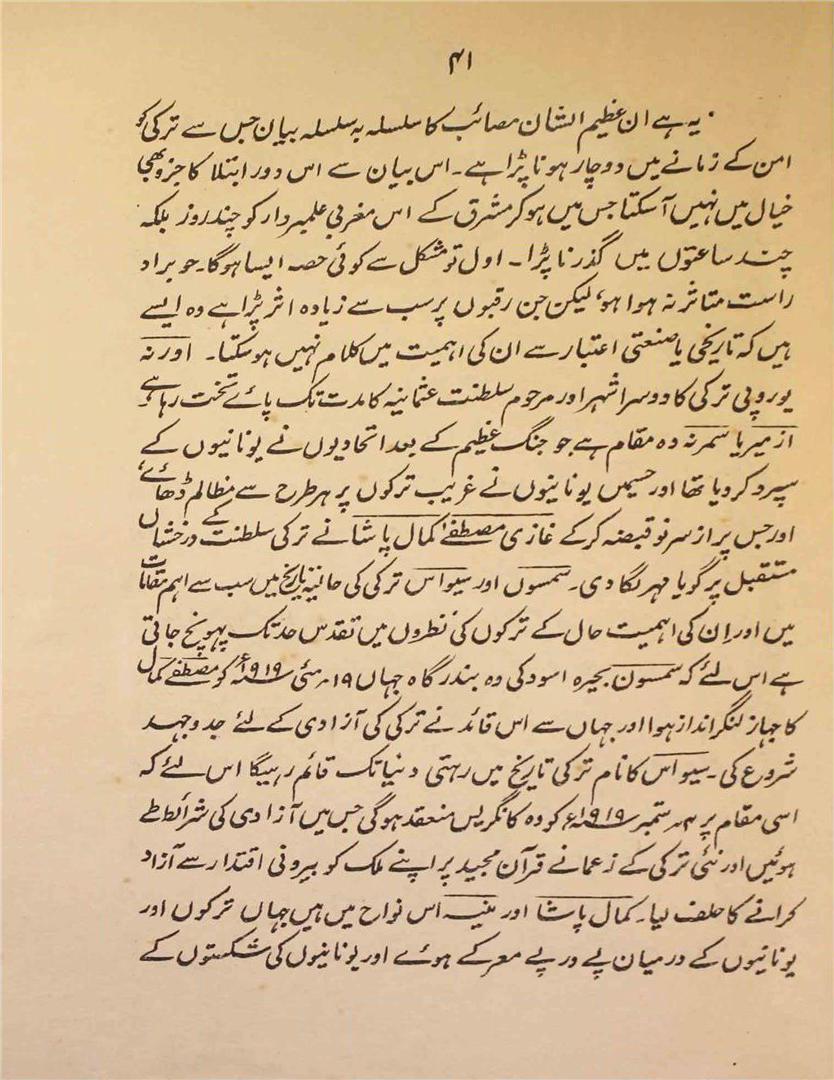 ۴۱
یہ ہے ان عظیم الشان مصائب کا سلسلہ بہ سلسلہ بیان جس سے ترکی کو
امن کے زمانے میں دوچار ہونا پڑا ہے۔ اس بیان سے اس دور ابتلا کا جزو بھی
خیال میں نہیں آسکتا جس میں ہو کر مشرق کے اس مغربی علمبردار کو چند روز بلکہ
چند ساعتوں میں گذرنا پڑا۔ اول تو مشکل سے کوئی حصہ ایسا ہوگا۔ جو براہ
راست متاثر نہ ہوا ہو، لیکن جن رقبوں پر سب سے زیادہ اثر پڑا ہے وہ ایسے
ہیں کہ تاریخی یا صنعتی اعتبار سے ان کی اہمیت میں کلام نہیں ہو سکتا۔ اورنہ
یوروپی ترکی کا دوسرا شہر اور مرحوم سلطنت عثمانیہ کا مدت تک پائے تخت رہا ہے
ازمیر یا سمرنہ وہ مقام ہے جو جنگ عظیم کے بعد اتحادیوں نے یونانیوں کے
سپرد کر دیا تھا اور جسمیں یونانیوں نے غریب ترکوں پر ہر طرح سے مظالم ڈھائے،
اور جس پر از سر نو قبضہ کرکے غازی مصطفےٰ کمال پاشا نے ترکی سلطنت کے درخشاں
مستقبل پر گویا مہر لگا دی۔ سمسوں اور سیواس ترکی کی حالیہ تاریخ میں سب سے اہم مقامات
ہیں اور ان کی اہمیت حال کے ترکوں کی نظروں میں تقدس حد تک پہونچ جاتی
ہے اس لئے کہ سمسون بحیرہ اسود کی وہ بندرگاہ جہاں ۱۹؍ مئی ۱۹۱۹ء کو مصطفےٰ کمال
کا جہاز لنگر انداز ہوا اور جہاں سے اس قائد نے ترکی کی آزادی کے لئے جدوجہد
شروع کی۔ سیواس کا نام ترکی تاریخ میں رہتی دنیا تک قائم رہیگا اس لئے کہ
اسی مقام پر ۴؍ ستمبر ۱۹۱۹ء کو وہ کانگریس منعقد ہوگی جس میں آزادی کی شرائط طے
ہوئیں اور نئی ترکی کے زعما نے قرآن مجید پر اپنے ملک کو بیرونی اقتدار سے آزاد
کرانے کا حلف لیا۔ کمال پاشا اور اس نواح میں ہیں جہاں ترکوں اور
یونانیوں کے درمیان پے در پے معرکے ہوئے اور یونانیوں کی شکستوں کے